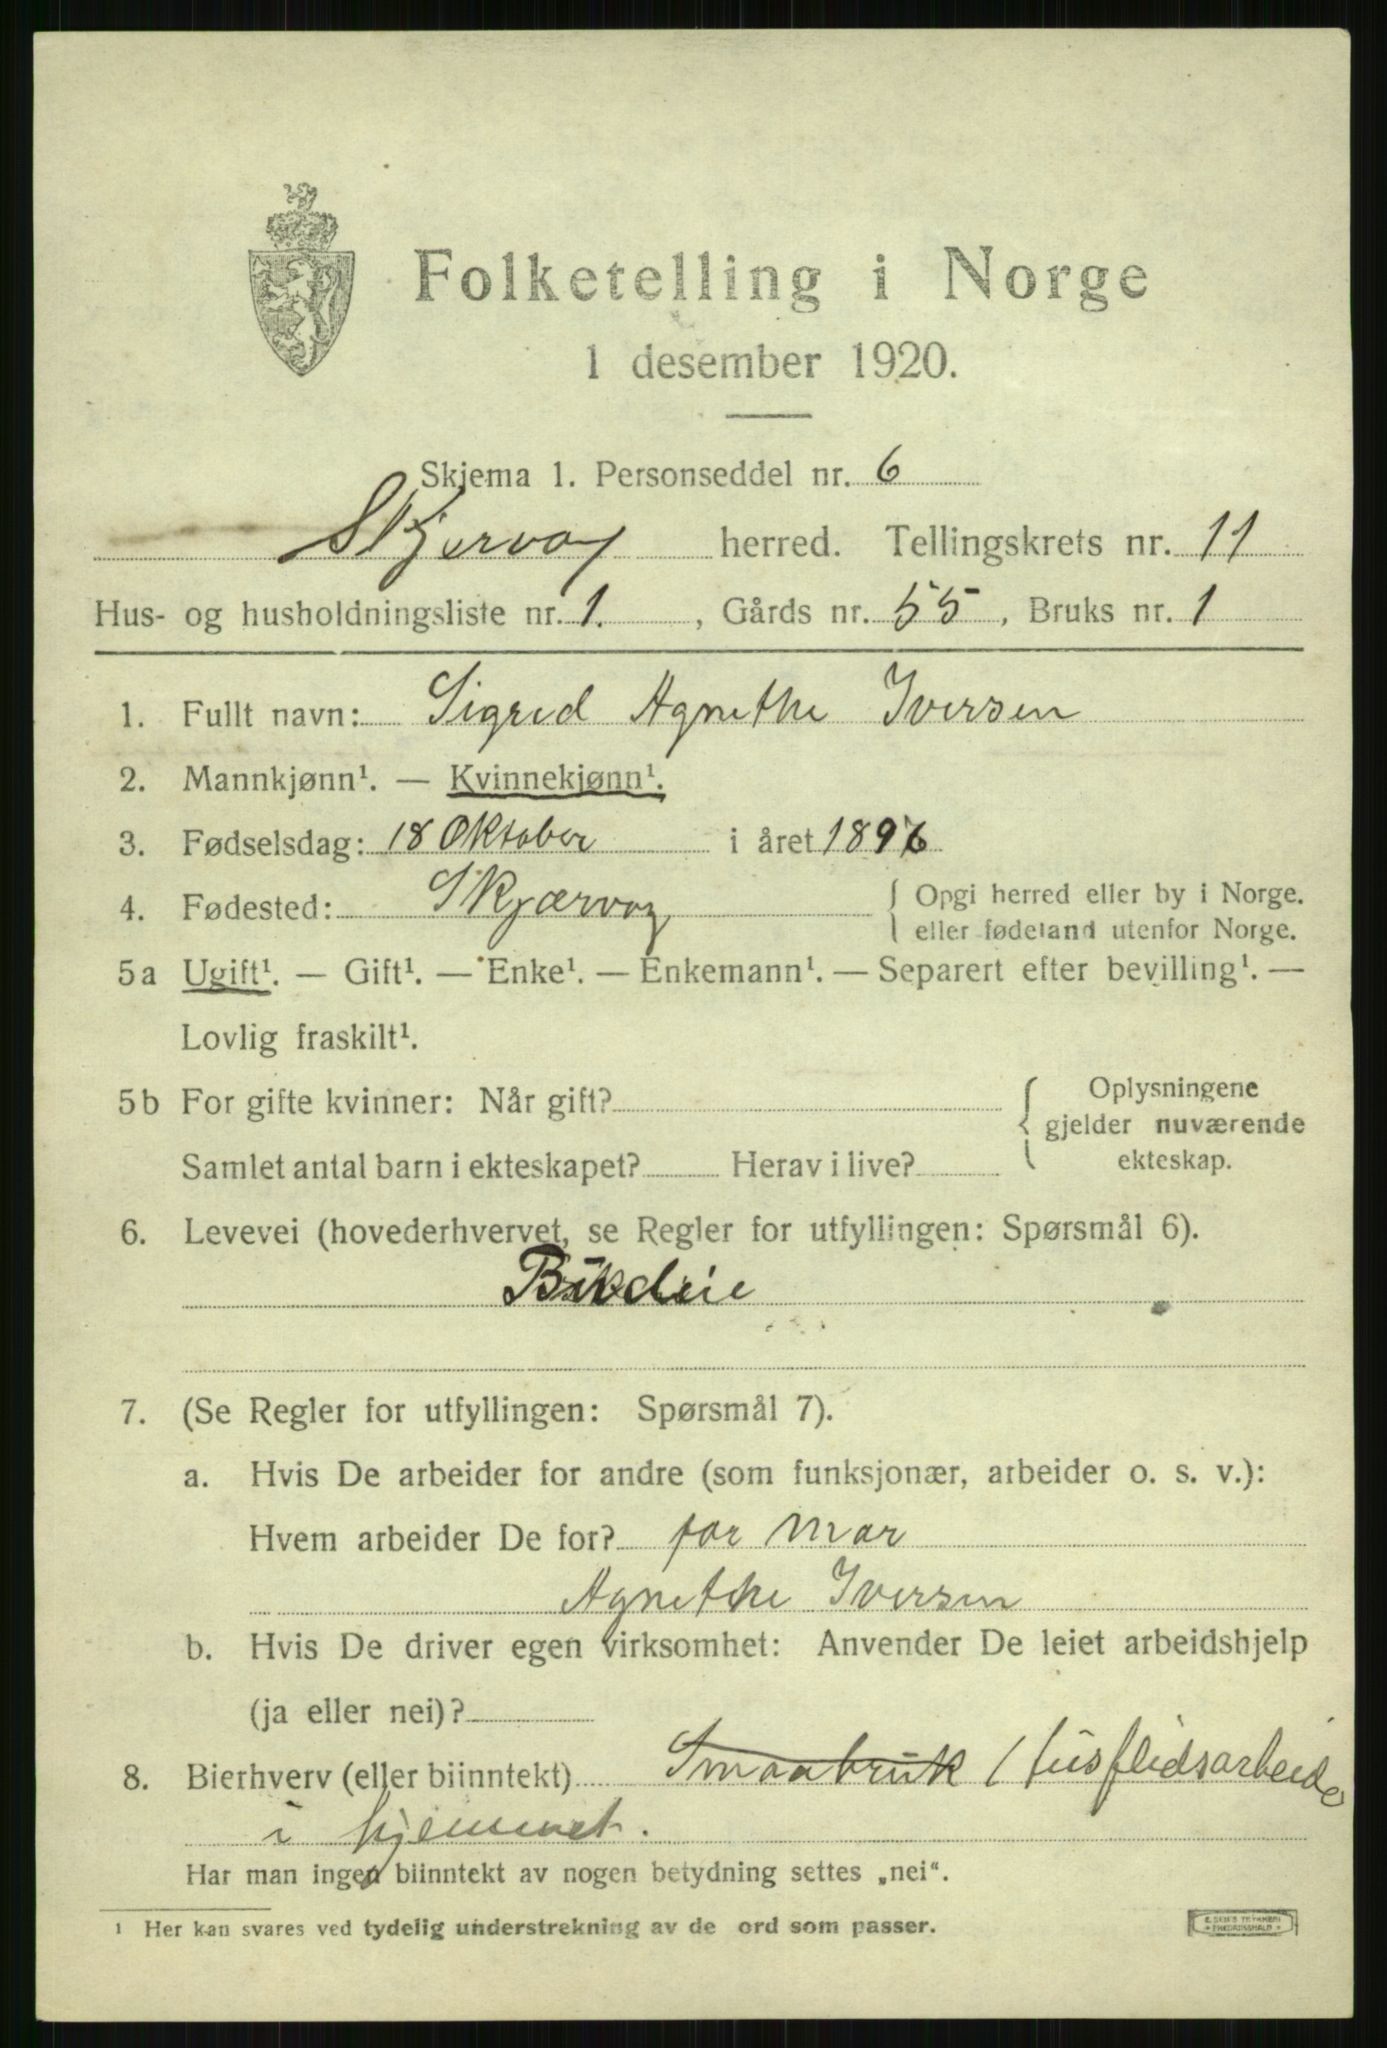 Folketelling i Norge
1 desember 1920.
Skjema 1. Personseddel nr. 6
Skjervøy herred. Tellingskrets nr. 11
Hus- og husholdningsliste nr. 1. , Gårds nr. 55, Bruks nr. 1
1. Fullt navn: Sigrid Agnethe Iversen
2. Mannkjønn¹. — Kvinnekjønn¹.
3. Fødselsdag: 18 Oktober i året 1896
4. Fødested: Skjærvøy { Opgi herred eller by i Norge.
eller fødeland utenfor Norge.
5a Ugift¹. — Gift¹. — Enke¹. — Enkemann¹. — Separert efter bevilling¹. —
Lovlig fraskilt¹.
5b For gifte kvinner: Når gift?
Samlet antal barn i ekteskapet? Herav i live?
{ Oplysningene
gjelder nuværende
ekteskap.
6. Levevei (hovederhvervet, se Regler for utfyllingen: Spørsmål 6).
7. (Se Regler for utfyllingen: Spørsmål 7).
a. Hvis De arbeider for andre (som funksjonær, arbeider o. s. v.):
Hvem arbeider De for? for mor
Agnethe Iversen
b. Hvis De driver egen virksomhet: Anvender De leiet arbeidshjelp
(ja eller nei)?
8. Bierhverv (eller biinntekt) Smaabruk Husflidsarbeide
i hjemmet.
Har man ingen biinntekt av nogen betydning settes „nei“.
¹ Her kan svares ved tydelig understrekning av de ord som passer.